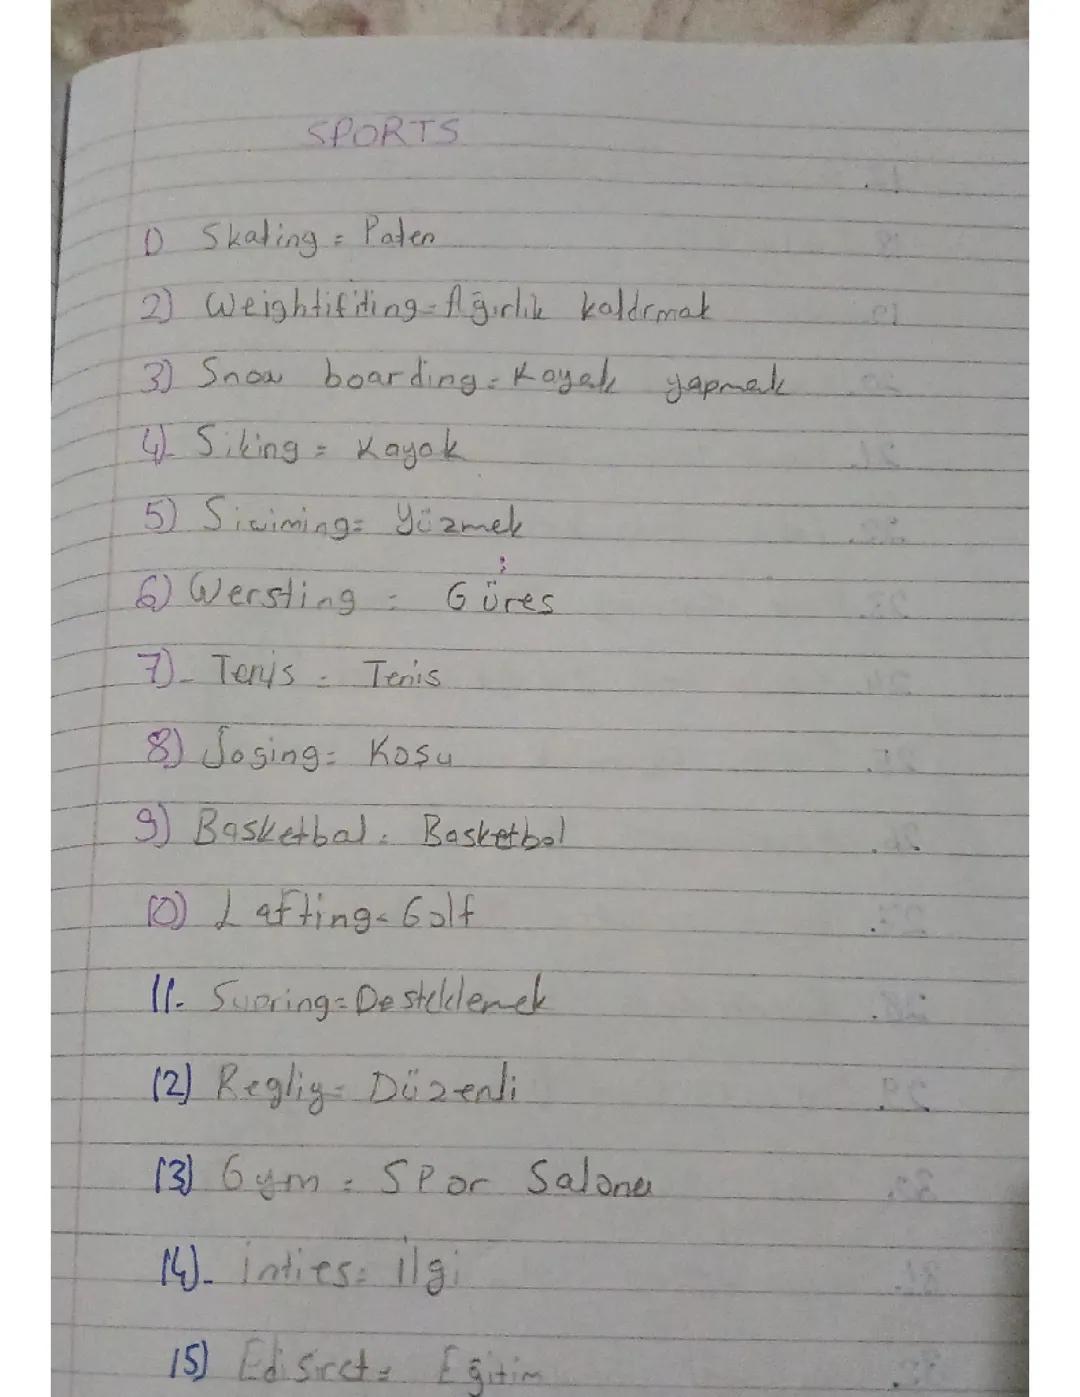 SPORTS
1) Skating = Paten
2) Weightifiting = Ağırlık kaldırmak
3) Snow boarding = Kayak yapmak
4) Siking = Kayak
5) Siwiming = Yüzmek
6) Wersting = Güreş
7) Tenis = Tenis
8) Joging = Koşu
9) Basketbal = Basketbol
10) Lafting = Golf
11. Suoring = Desteklemek
12) Regliy = Düzenli
13) Gym = SPor Salonu
14) inties = ilgi
15) Edisirct = Eğitim